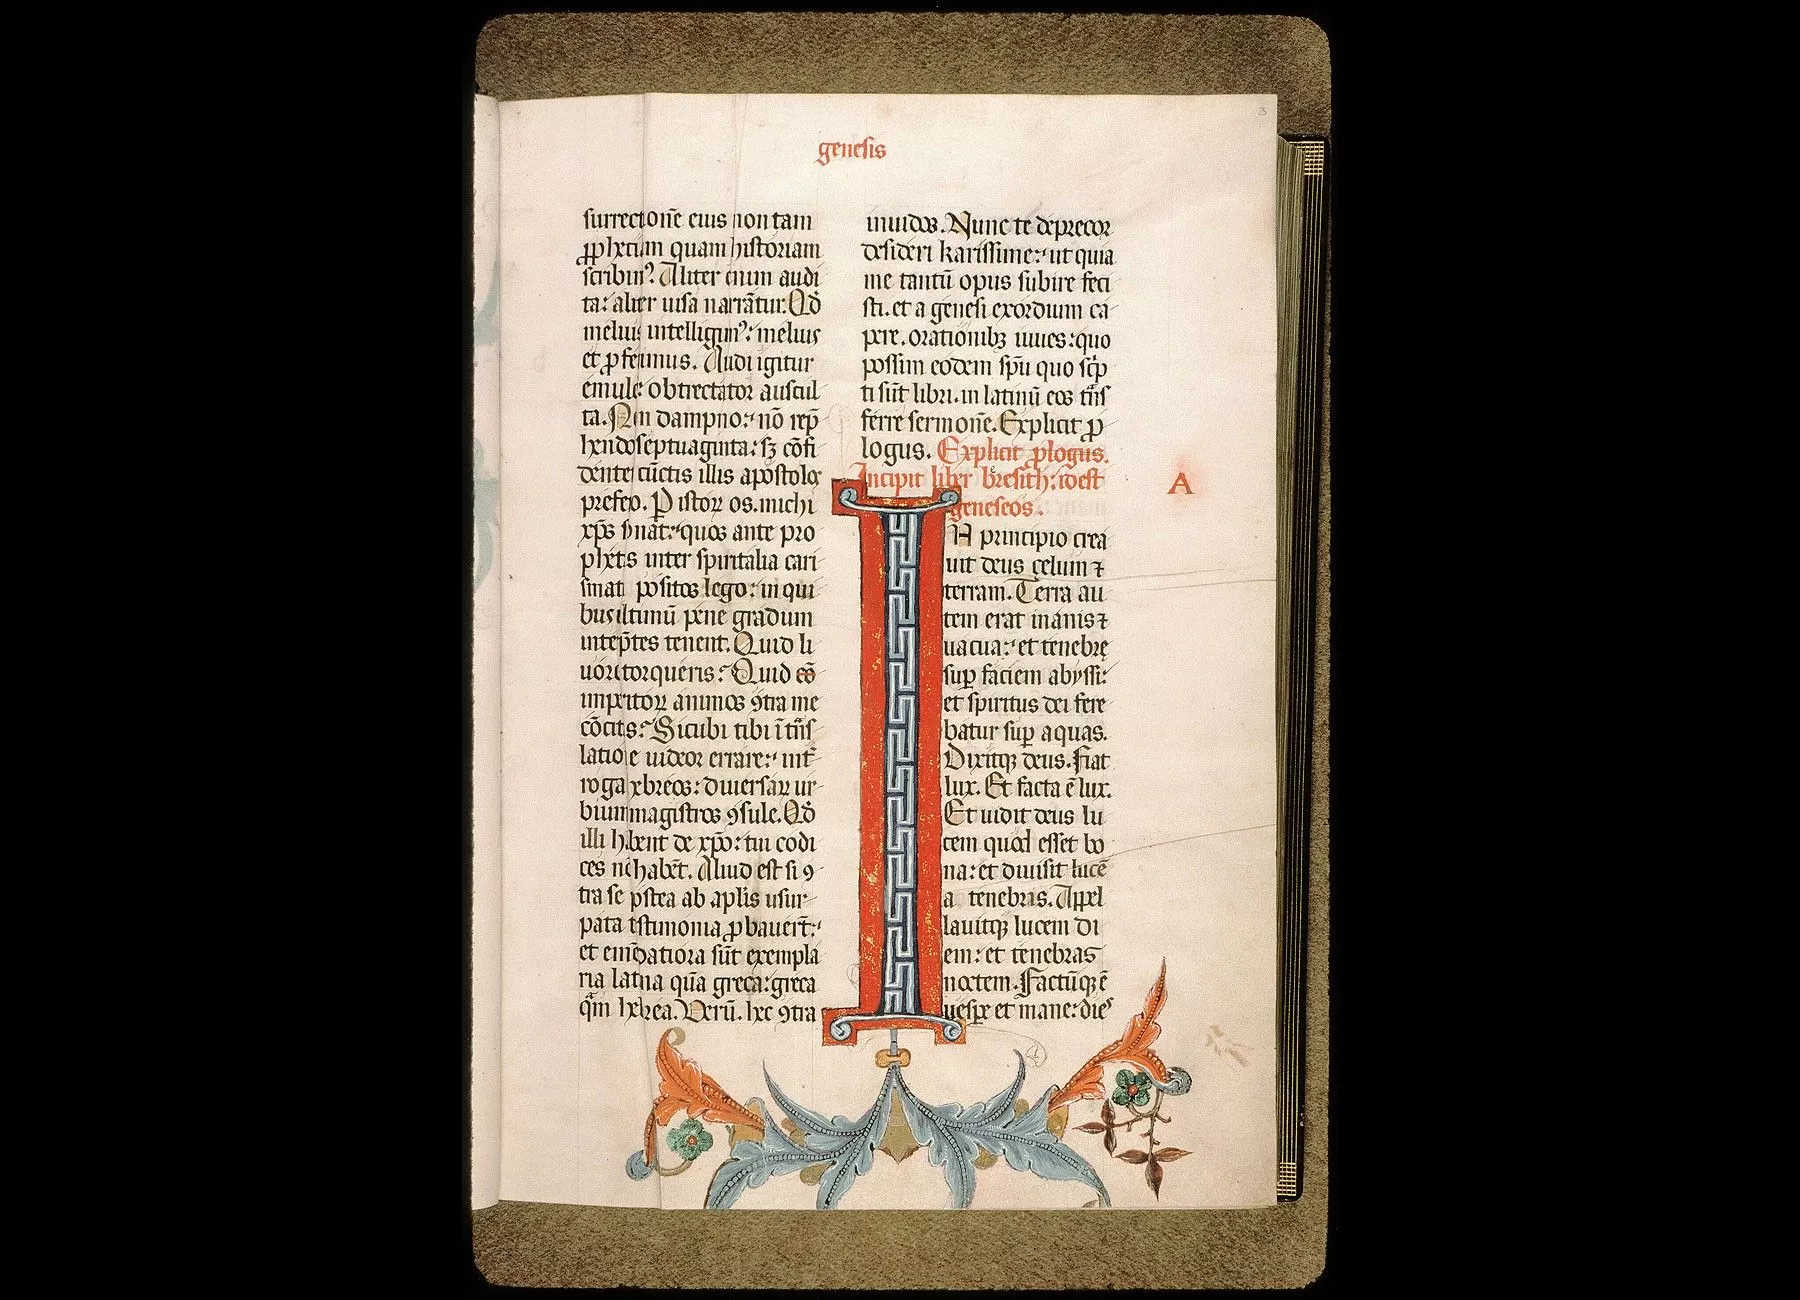 3
genesis
surrectionē eius non tam
ꝓphetiam quam historiam
scribim⁹. Aliter enim audi
ta: aliter uisa narrātur. Qd̓
melius intelligim⁹: melius
et ꝓferimus. Audi igitur
emule obtrectator auscul
ta. Non dampno: nō rep̄
hendo septuaginta: sꝫ cōfi
denter cūctis illis apostolos
prefero. P istoꝝ os michi
xp̄s sonat: quos ante pro
phetis inter spiritalia cari
smata positos lego: in qui
bus ultimū pene gradum
interp̄tes tenent. Quid li
uore torqueris? Quid
imperitoꝝ animos ꝯtra me
cōcitas? Sicubi tibi ī trās
latione uideor errare: int̄
roga hebreos: diuersaꝝ ur
bium magistros ꝯsule. Qd̓
illi habent de xp̄o: tui codi
ces nō habēt. Aliud est si ꝯ
tra se postea ab apl̄is usur
pata testimonia ꝓbauerīt:
et emēdatiora sūt exempla
ria latina quā greca: greca
qm̄ hebrea. Verū. hec ꝯtra
inuidos. Nunc te deprecor
desideri karissime: ut quia
me tantū opus subire feci
sti. et a genesi exordium ca
pere. orationibꝫ iuues: quo
possim eodem sp̄u quo sc̓p
ti sūt libri. in latinū eos trās
ferre sermonē. Explicit ꝓ
logus. Explicit ꝓlogus.
Incipit liber bresith: idest
geneseos.
A
IN principio crea
uit deus celum ⁊
terram. Terra au
tem erat inanis ⁊
uacua: et tenebrę
suꝑ faciem abyssi:
et spiritus dei fere
batur suꝑ aquas.
Dixitqꝫ deus. Fiat
lux. Et facta ē lux.
Et uidit deus lu
cem quod esset bo
na: et diuisit lucē
a tenebras. Appel
lauitqꝫ lucem di
em: et tenebras
noctem. Factūqꝫ ē
uesꝑe et mane: dies